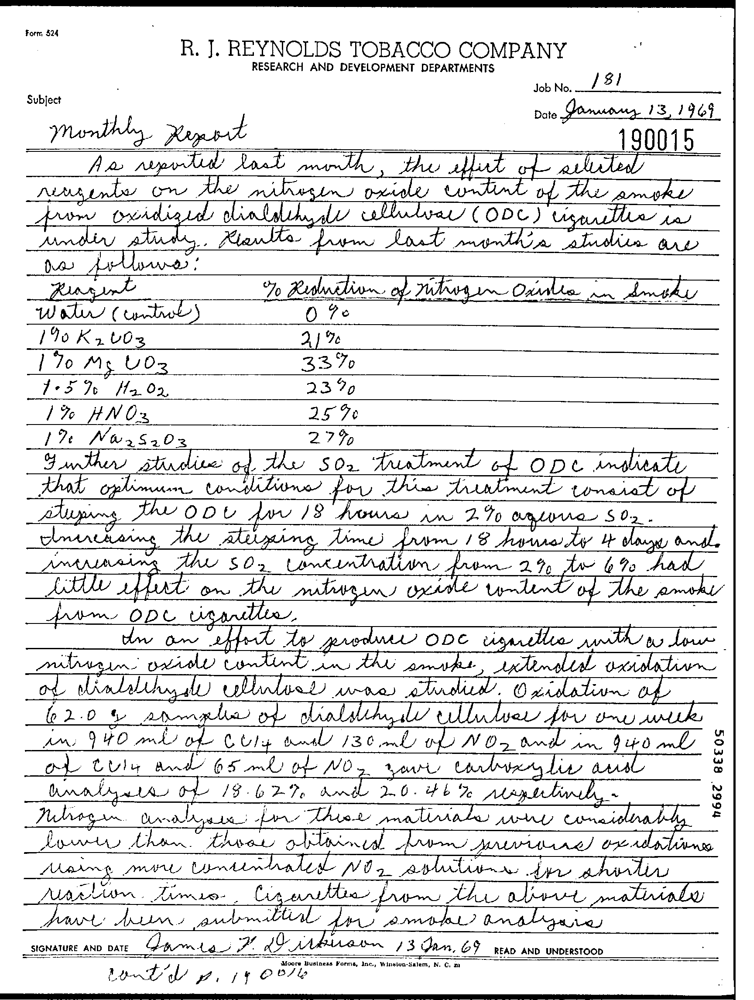 Form 524
R. J. REYNOLDS TOBACCO COMPANY
RESEARCH AND DEVELOPMENT DEPARTMENTS
Job No. 181
Subject
Date January 13, 1969
Monthly Report
190015
As reported last month, the effect of selected
reagents on the nitrogen oxide content of the smoke
from oxidized dialdehyde cellulose (ODC) cigarettes is
under study. Results from last month's studies are
as follows:
Reagent % Reduction of Nitrogen Oxides in Smoke
Water (control) 0%
1% K2CO3 21%
1% Mg CO3 33%
1.5% H2O2 23%
1% HNO3 25%
1% Na2S2O3 27%
Further studies of the SO2 treatment of ODC indicate
that optimum conditions for this treatment consist of
steeping the ODC for 18 hours in 2% aqueous SO2.
Increasing the steeping time from 18 hours to 4 days and
increasing the SO2 concentration from 2% to 6% had
little effect on the nitrogen oxide content of the smoke
from ODC cigarettes.
In an effort to produce ODC cigarettes with a low
nitrogen oxide content in the smoke, extended oxidation
of dialdehyde cellulose was studied. Oxidation of
62.0 g samples of dialdehyde cellulose for one week
in 940 ml of CCl4 and 130 ml of NO2 and in 940 ml
of CCl4 and 65 ml of NO2 gave carboxylic acid
analyses of 18.62% and 20.46% respectively.
Nitrogen analyses for these materials were considerably
lower than those obtained from previous oxidations
using more concentrated NO2 solutions for shorter
reaction times. Cigarettes from the above materials
have been submitted for smoke analysis
SIGNATURE AND DATE James F. Dickerson 13 Jan, 69 READ AND UNDERSTOOD
Moore Business Forms, Inc., Winston-Salem, N. C. m
cont'd p. 190016
50338 2994